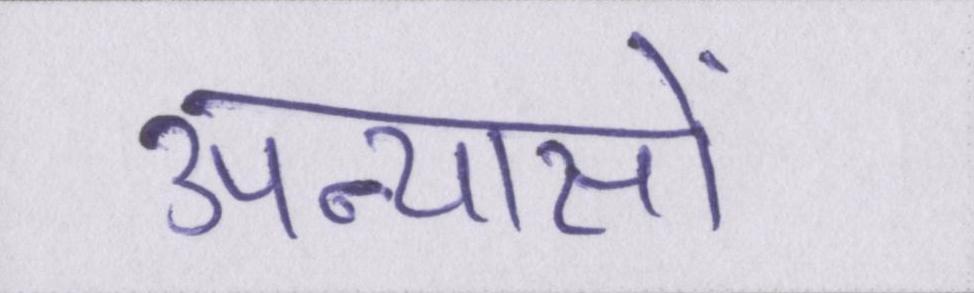 उपन्यासों